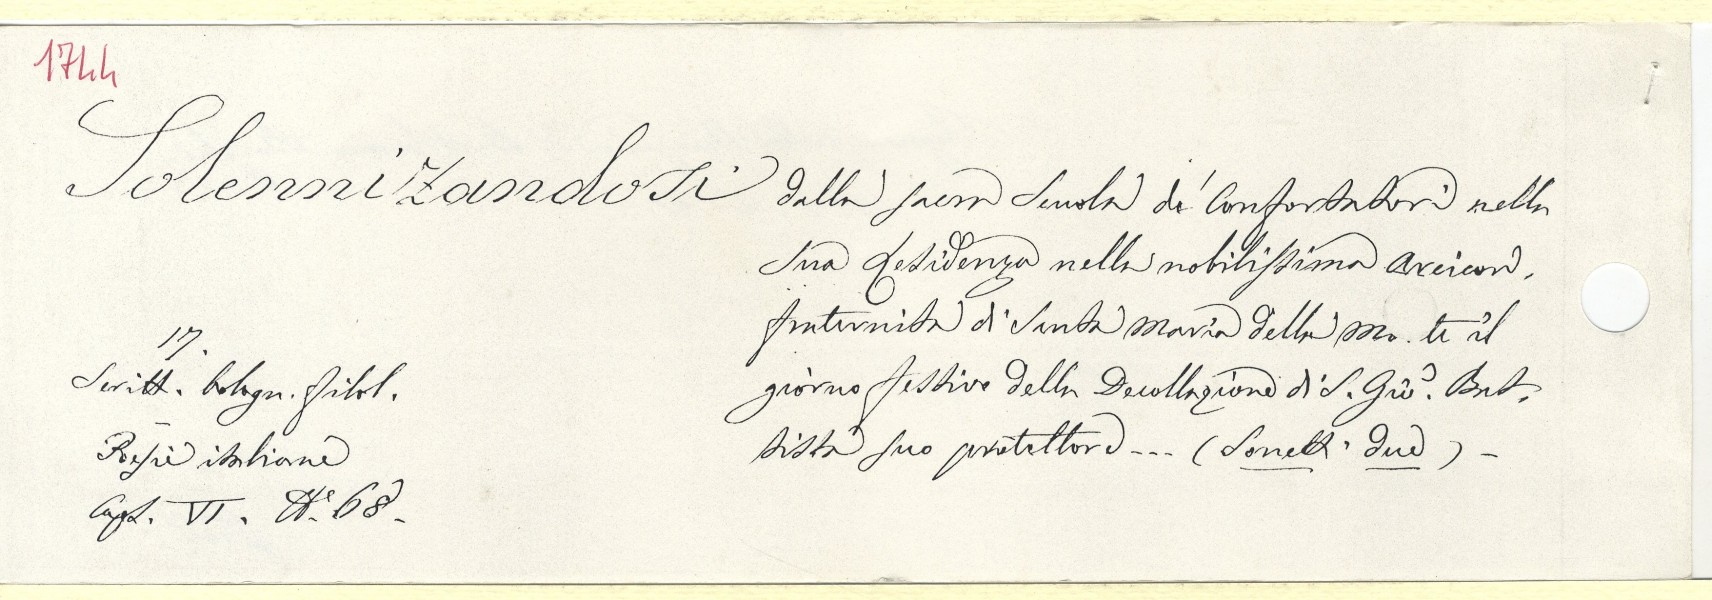 1744
Solennizandosi dalla sacra Scuola de' Confortatori nella
sua Residenza nella nobilissima Arcicon,
fraternità di Santa Maria della Mo.te il
giorno festivo della Decollazione di S. Gio. Bat,
tista suo protettore --- (Sonetti due) -
17.
Scritt. bologn. filol.
Poesie italiane
Cart. VI. N.º 68.